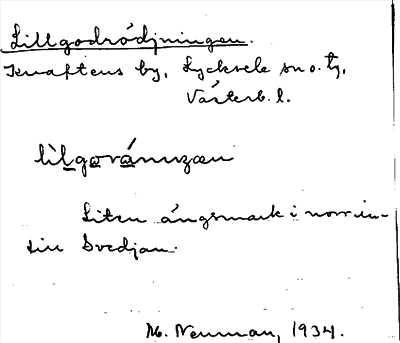 Lillgodrödjningen.
Knaftens by, Lycksele sn o. tg,
Västerb. l.
Liten ängsmark i norr in-
till Svedjan.
M. Neuman, 1934.